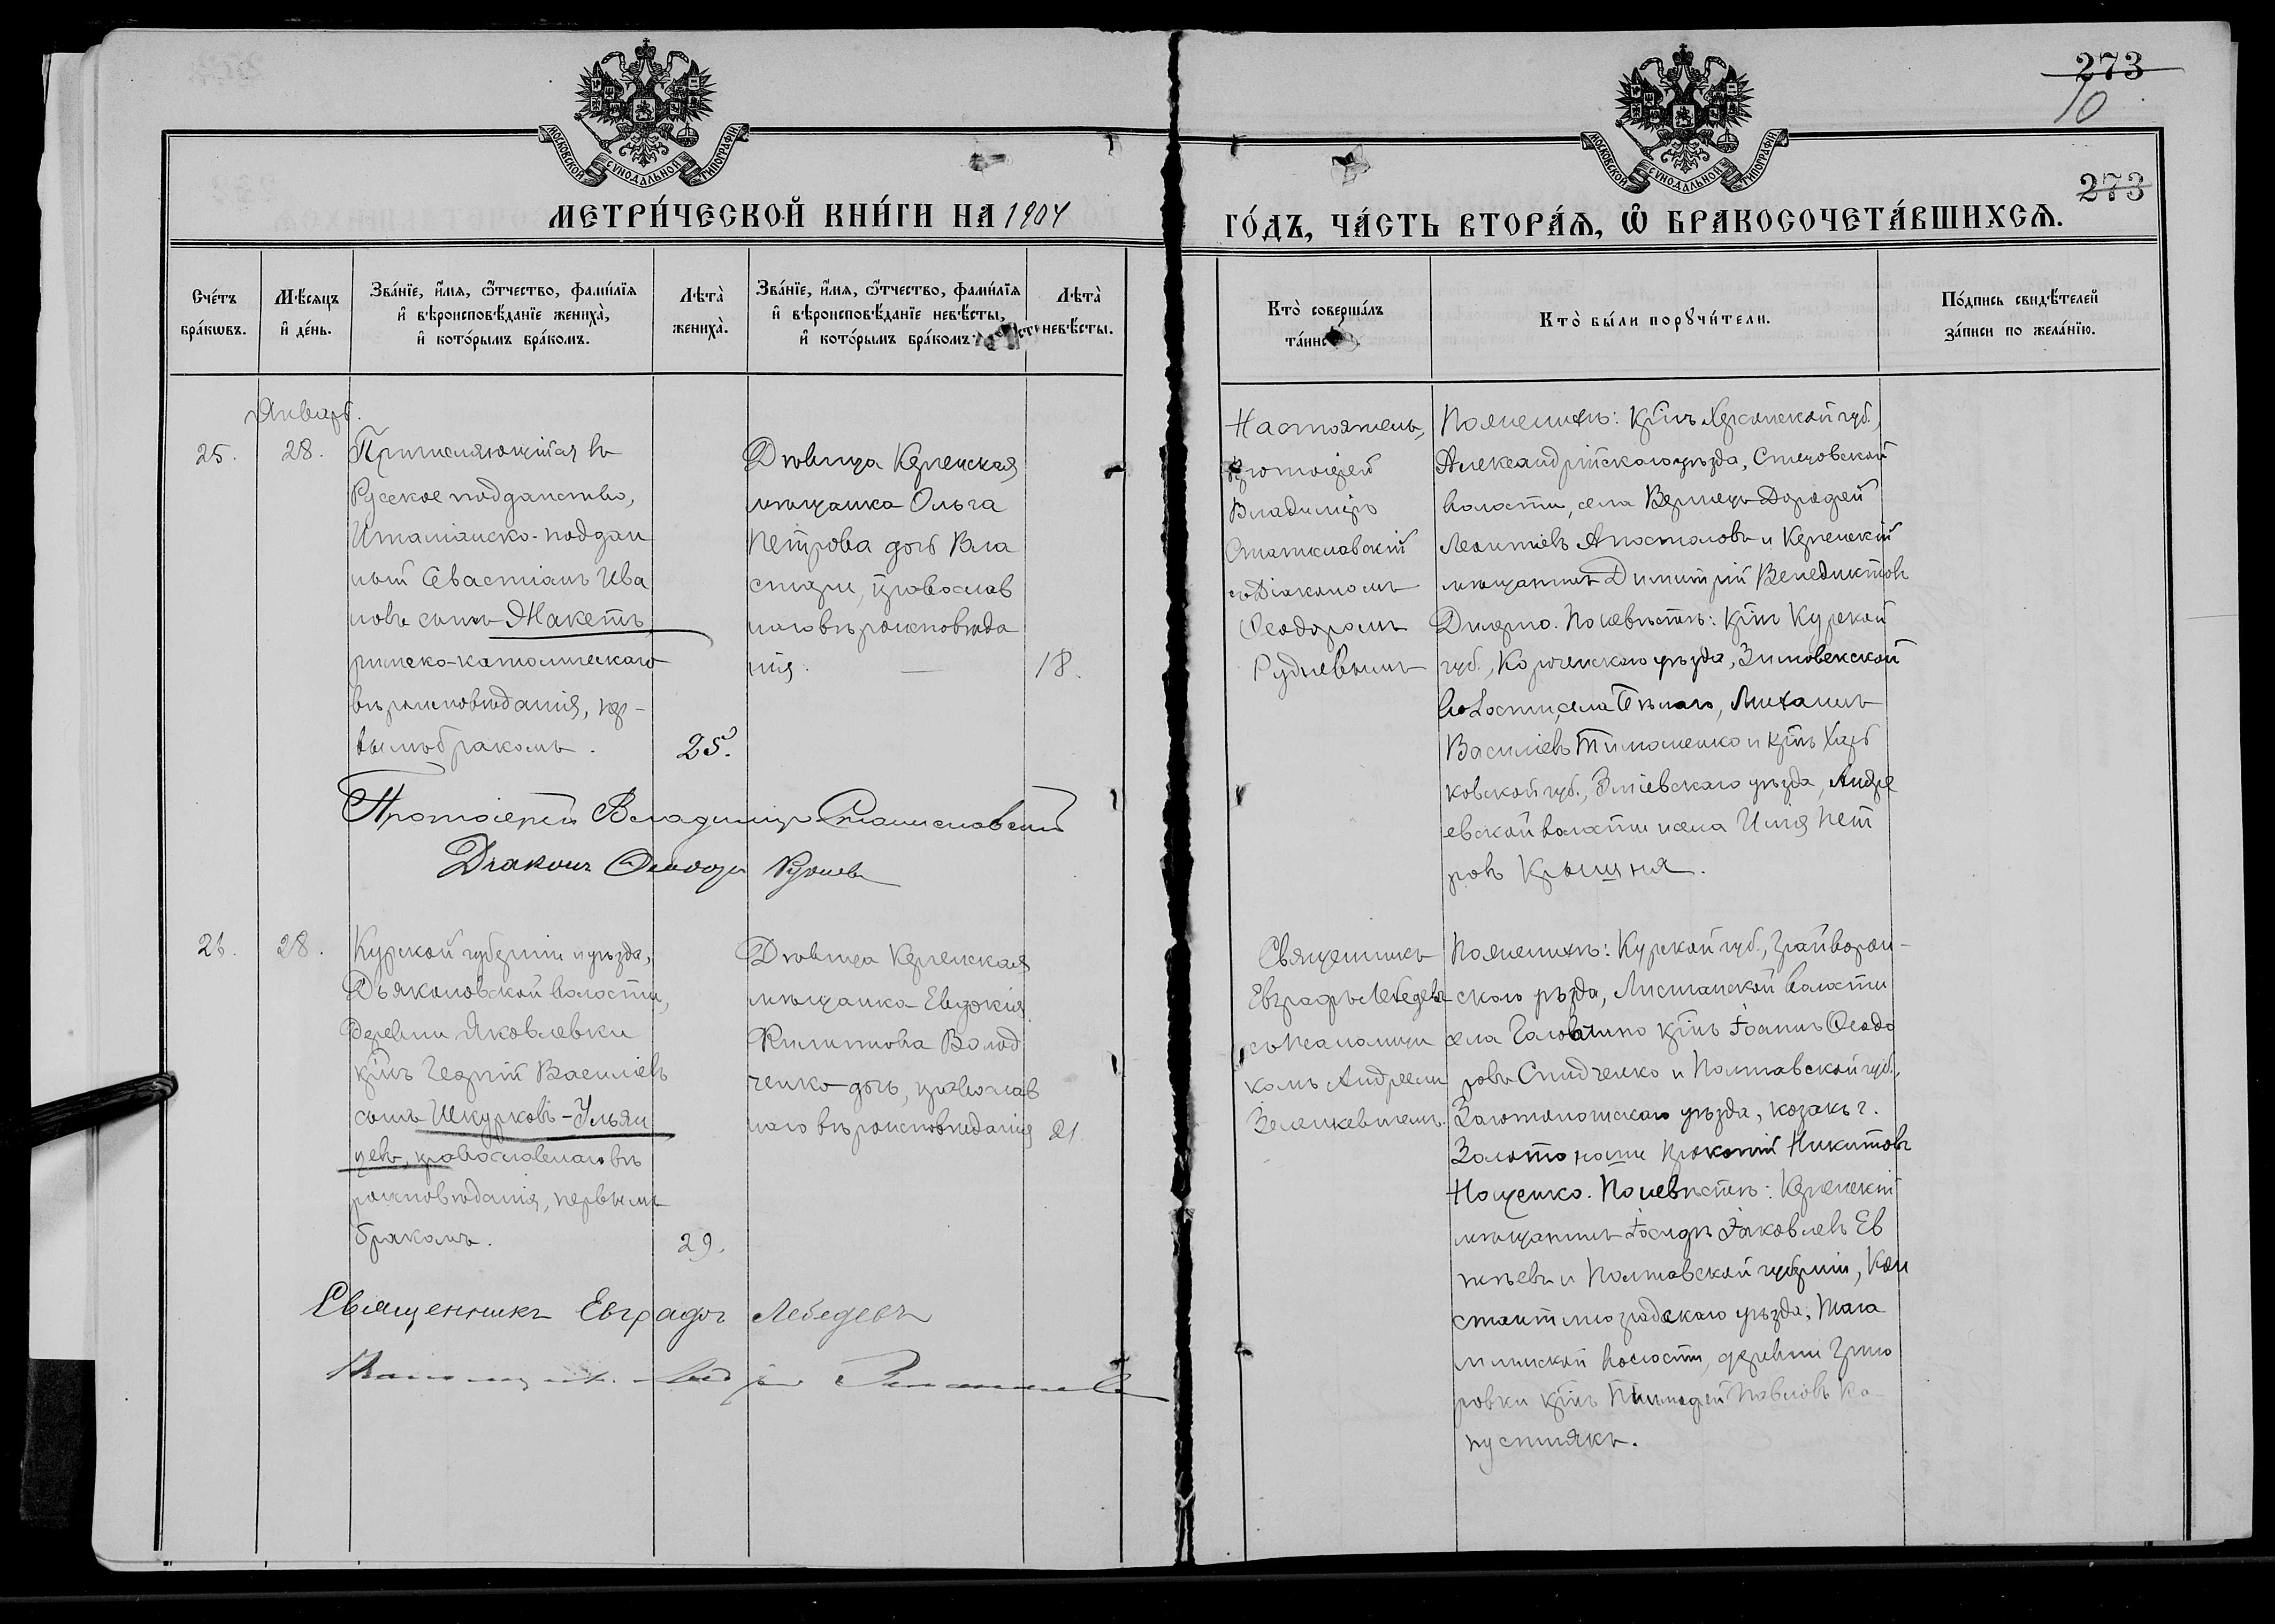 273
10
273
МОСКОВСКОЙ СѴНОДАЛЬНОЙ ТИПОГРАФІИ
МОСКОВСКОЙ СѴНОДАЛЬНОЙ ТИПОГРАФІИ
МЕТРИ́ЧЕСКОЙ КНИ́ГИ НА 1904
ГО́ДЪ, ЧА́СТЬ ВТОРА́Ѧ, Ѿ БРАКОСОЧЕТА́ВШИХСѦ.
Сче́тъ
бра́кωвъ.
Мѣ́сяцъ
и҆ де́нь.
Зва́нїе, и҆́мя, ѻ҆́тчество, фами́лїя
и҆ вѣроисповѣ́данїе жениха̀,
и҆ кото́рымъ бра́комъ.
Лѣта̀
жениха̀.
Зва́нїе, и҆́мя, ѻ҆́тчество, фами́лїя
и҆ вѣроисповѣ́данїе невѣ́сты,
и҆ кото́рымъ бра́комъ
Лѣта̀
невѣ́сты.
Кто̀ соверша́лъ
та́инс
Кто̀ бы́ли порꙋчи́тели.
По́дпись свидѣ́телей
за́писи по жела́нїю.
Январь.
25.
28.
Русское подданство,
Италіанско-поддан
ный Севастіанъ Ива
новъ сынъ Жакетъ,
римско-католическаго
вѣроисповѣданія, пер-
вымъ бракомъ.
25.
Дѣвица Керченская
мѣщанка Ольга
Петрова дочь Вла
стари, православ
наго вѣроисповѣда
нія.
18.
Настоятель,
Протоіерей
Владиміръ
Станиславскій
съ Діакономъ
Ѳеодоромъ
Рудневымъ
По женихѣ: кр̃нъ Херсонской губ.,
Александрійскаго уѣзда,
волости, села Дорофей
Леонтіевъ Апостоловъ и Керченскій
мѣщанинъ Димитрій Венедиктовъ
По невѣстѣ: кр̃нъ Курской
губ., Корочанскаго уѣзда,
волости, села Михаилъ
Василіевъ Тимошенко и кр̃нъ Харь
ковской губ., Зміевскаго уѣзда, Андре
евской волости и села Илія Пет
ровъ Крышня.
Протоіерей Владиміръ Станиславскій
Діаконъ Ѳеодоръ Рудневъ
26.
28.
Курской губерніи и уѣзда,
Дьяконовской волости,
деревни Яковлевки
кр̃нъ Георгій Василіевъ
сынъ Шкурковъ-Ульян
цевъ, православнаго вѣ
роисповѣданія, первымъ
бракомъ.
29.
Дѣвица Керченская
мѣщанка Евдокія
Филиппова Волод
ченко дочь, православ
наго вѣроисповѣданія
21
Священникъ
Евграфъ Лебедевъ
съ Псаломщи
комъ Андреемъ
Зеленкевичемъ.
По женихѣ: Курской губ., Грайворон-
скаго уѣзда, Лисичанской волости
села Головчино кр̃нъ Іоаннъ Ѳеодо
ровъ Спидченко и Полтавской губ.,
Золотоношскаго уѣзда, козакъ г.
Золотоноши Прокопій Никитовъ
Нощенко. По невѣстѣ: Керченскій
мѣщанинъ Іосифъ Іаковлевъ Ев
и Полтавской губерніи, Кон
стантиноградскаго уѣзда,
волости, деревни Григо
ровки кр̃нъ Тимофей Павловъ Ка-
пустнякъ.
Священникъ Евграфъ Лебедевъ